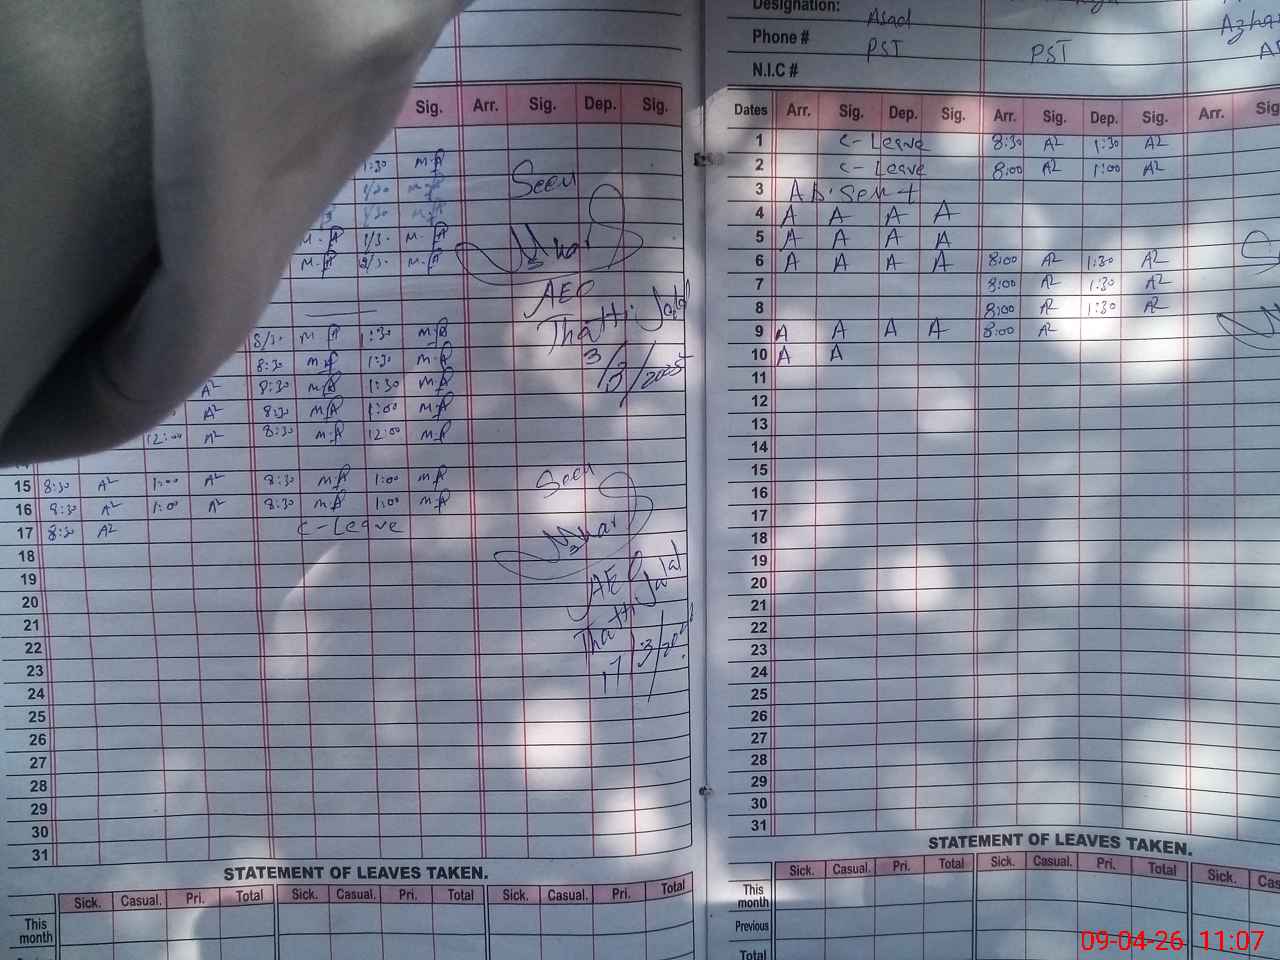 Sig. Arr. Sig. Dep. Sig.
1:30 M.A
Seen
M.A
M.A
M.A M.A
M.A M.A
AEO
Thatthi Jalal
8:30 M.A 1:30 M.A
8:30 M.A 1:30 M.A
A2 8:30 M.A 1:30 M.A
A2 8:30 M.A 1:00 M.A
12:00 A2 8:30 M.A 12:00 M.A
15 8:30 A2 1:00 A2 8:30 M.A 1:00 M.A
Seen
16 8:30 A2 1:00 A2 8:30 M.A 1:00 M.A
17 8:30 A2 C-Leave
18
19
AEO
20
Thatthi Jalal
21
22
17/3/
23
24
25
26
27
28
29
30
31
STATEMENT OF LEAVES TAKEN.
Sick. Casual. Pri. Total Sick. Casual. Pri. Total Sick. Casual. Pri. Total
This month
Designation: Asad
Phone # PST PST
N.I.C #
Dates Arr. Sig. Dep. Sig. Arr. Sig. Dep. Sig. Arr.
1 C-Leave 8:30 A2 1:30 A2
2 C-Leave 8:00 A2 1:00 A2
3 Absent
4 A A A A
5 A A A A
6 A A A A 8:00 A2 1:30 A2
7 8:00 A2 1:30 A2
8 8:00 A2 1:30 A2
9 A A A A 8:00 A2
10 A A
11
12
13
14
15
16
17
18
19
20
21
22
23
24
25
26
27
28
29
30
31
STATEMENT OF LEAVES TAKEN.
Sick. Casual. Pri. Total Sick. Casual. Pri. Total Sick.
This month
Previous
Total
09-04-26 11:07